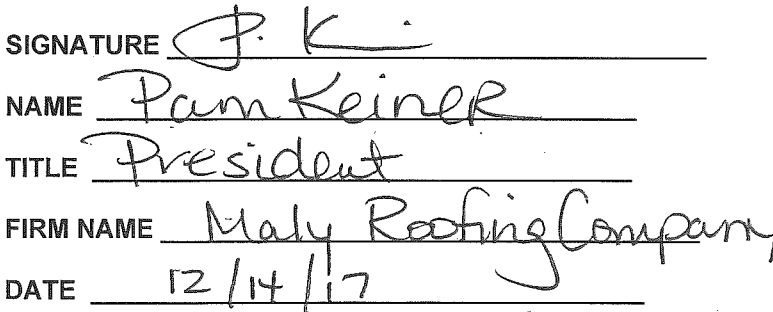 SIGNATURE P. K
NAME Pam Keiner
TITLE President
FIRM NAME Maly Roofing Company
DATE 12/14/17